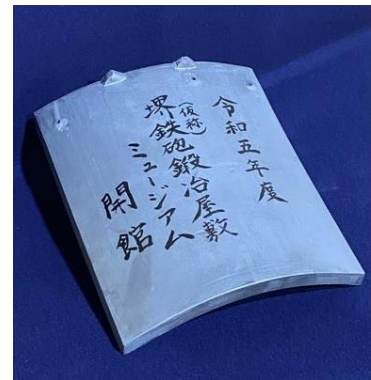 令和五年度
(仮称)
堺鉄砲鍛冶屋敷
ミュージアム
開館